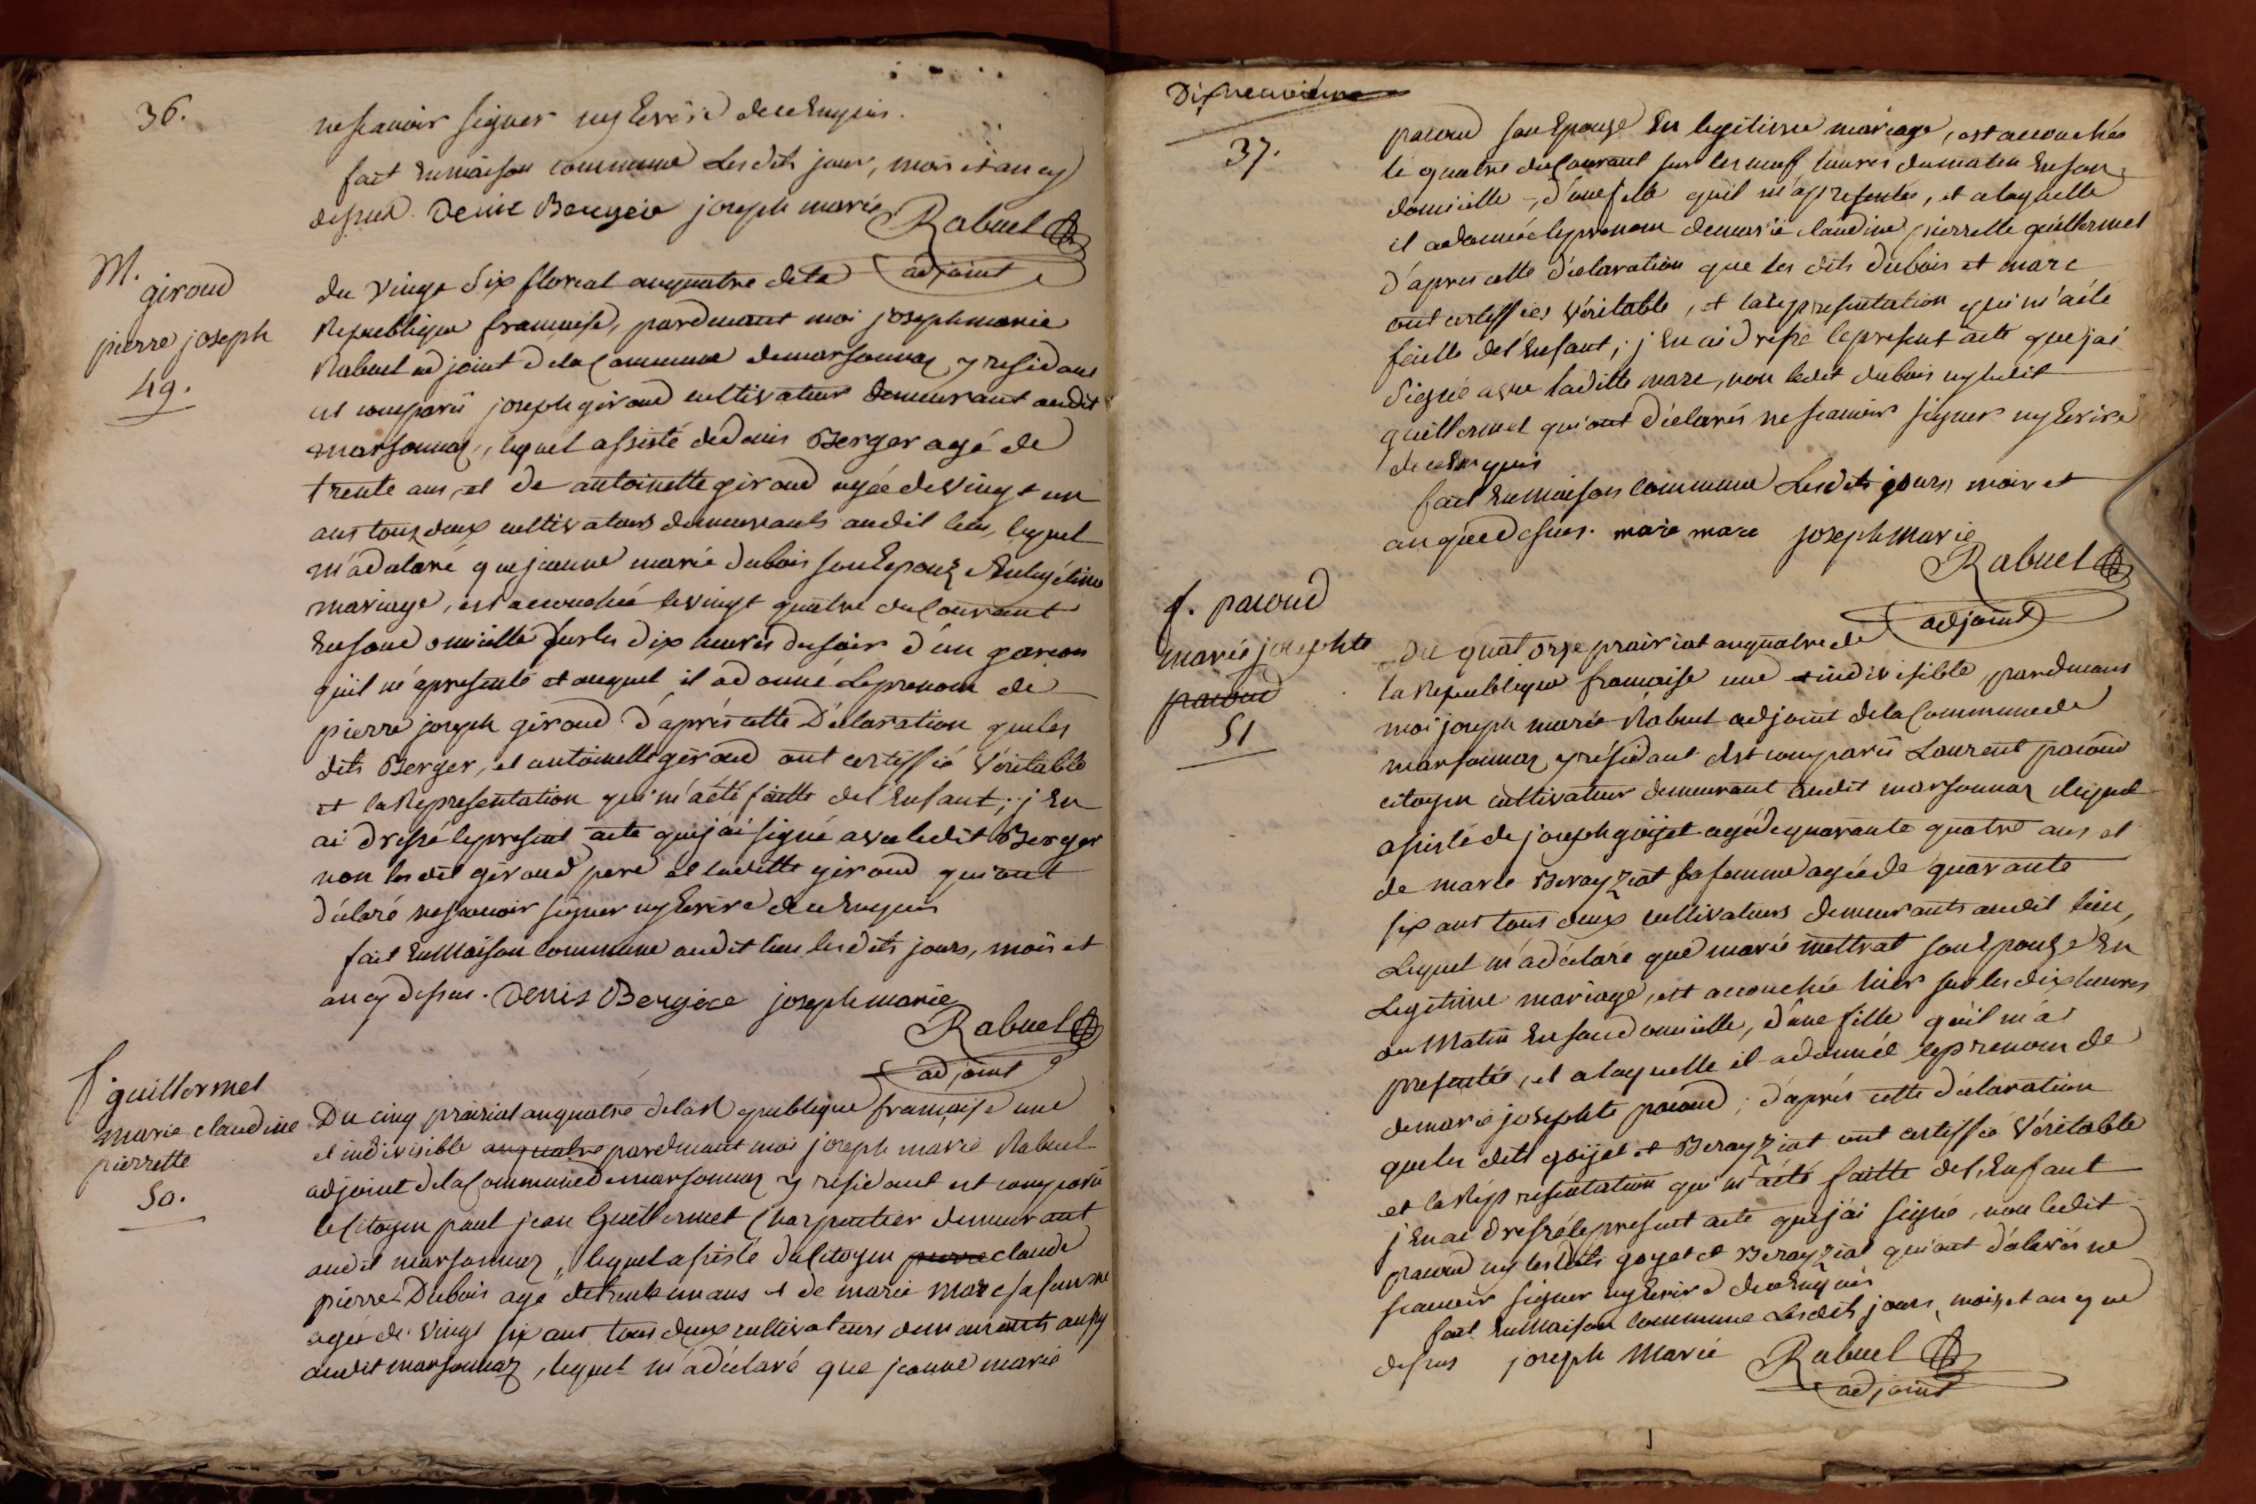 36.
nescavoir signer ny Ecrire de ce Enquis.
fait En maison commune Lesdits jour, mois et an cy
dessus. Denis Bergér joseph marie
Rabuel
adjoint
M.
giroud
pierre joseph
49.
du vingt Six floreal an quatre de la
Republique francaise, pardevant moi joseph marie
Rabuel adjoint de la Commune de marsonnaz y residant
est comparü joseph giroud cultivateur demeurant audit
marsonnaz, lequel assisté de denis Berger agé de
trente ans, et de antoinette giroud agée de vingt un
ans tous deux cultivateurs demeurants audit lieu, lequel
m'a déclaré que jeanne marie dubois son Epouze En legitime
mariage, est accouchée le vingt quatre du Courant
En son domicille sur les dix heures du soir d'un garcon
qu'il m'a presenté et auquel il a donné Le prenom de
pierre joseph giroud d'après cette Déclaration que les
dits Berger, et antoinette giroud ont certiffié Véritable
et la Representation qui m'a été faitte de l'Enfant; j'En
ai dressé le present acte que j'ai signé avec ledit Berger
non les dit giroud pere et laditte giroud qui ont
d'éclaré ne scavoir signer ny Ecrire de ce Enquis
fait En Maison commune audit lieu lesdits jours, mois et
an cy dessus. Denis Bergére joseph marie
Rabuel
adjoint
f. guillermet
marie claudine
pierrette
50.
Du cinq prairial an quatre de la Republique francaise une
et indivisible an quatre pardevant moi joseph marie Rabuel
adjoint de la Commune de marsonnaz y residant est comparü
le Citoyen paul jean Guillermet Charpentier demeurant
audit marsonnaz, lequel assisté du Citoyen pierre claude
pierre Dubois agé de trente un ans et de marie marc sa femme
agée de vingt six ans tous deux cultivateurs demeurants aussy
audit marsonnaz, lequel m'a déclaré que jeanne marie
Dixneuvième
37.
pacoud son Epouze En legitime mariage, est accouchée
le quatre du Courant sur les neuf heures du matin En son
domicille, d'une fille qu'il m'a presentée, et a laquelle
il a donnée le prenom de marie claudine pierrette guillermet
d'apres cette d'éclaration que les dits dubois et marc
ont certiffiés véritable, et la representation qui m'a été
faitte de l'Enfant; j'En ai dressé le present acte que j'ai
signé avec laditte marc, non ledit dubois ny ledit
guillermet qui ont d'éclarés ne scavoir signer ny Ecrire
de ce Enquis
fait En maison commune Lesdits jours mois et
an que dessus. marie marc joseph marie
Rabuel
adjoint
f. pacoud
marie josephte
pacoud
51
Du quatorze prairial an quatre de
la Republique francaise une et indivisible, pardevant
moi joseph marie Rabuel adjoint de la Commune de
marsonnaz y résidant est comparü Laurent pacoud
citoyen cultivateur demeurant audit marsonnaz lequel
assisté de joseph goyet agé de quarante quatre ans et
de marie Berayziat sa femme agée de quarante
six ans tous deux cultivateurs demeurants audit lieu,
Lequel m'a déclaré que marie mettrat son Epouze En
Legitime mariage, est accouchée hier sur les dix heures
du Matin En son domicille, d'une fille qu'il m'a
presentée, et a laquelle il a donnée le prenom de
de marie josephte pacoud; d'après cette d'éclaration
que les dits goyet et Berayziat ont certiffié Véritable
et la Representation qui m'a été faitte de l'Enfant
j'En ai dressé le present acte que j'ai signé, non ledit
pacoud ny lesdits goyet et Berayziat qui ont d'éclarés ne
scavoir signer ny Ecrire de ce Enquis
fait En maison commune Lesdits jours, mois et an que
dessus joseph Marie Rabuel
adjoint